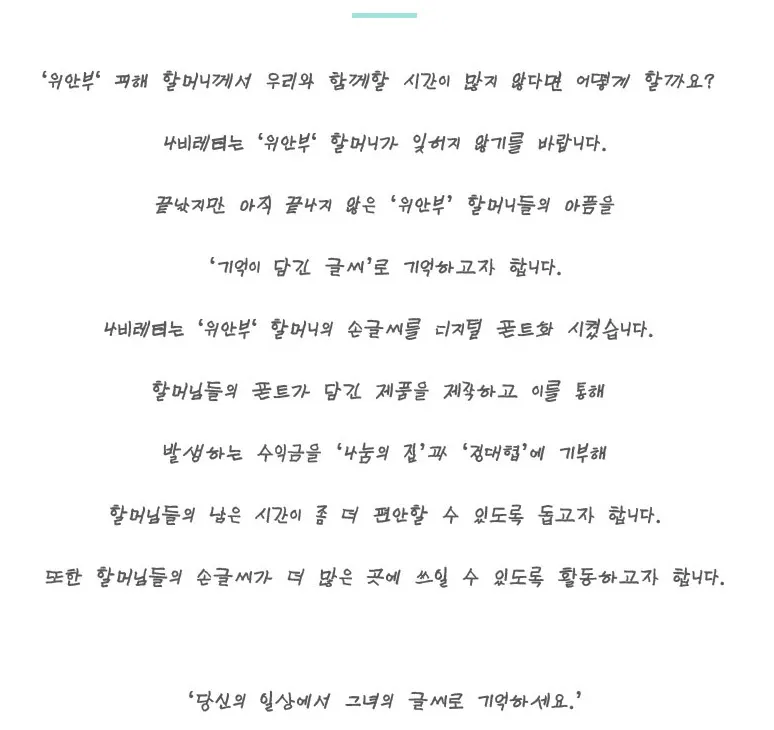 ‘위안부‘ 피해 할머니께서 우리와 함께할 시간이 많지 않다면 어떻게 할까요?
나비레터는 ‘위안부‘ 할머니가 잊혀지 않기를 바랍니다.
끝났지만 아직 끝나지 않은 ‘위안부’ 할머니들의 아픔을
‘기억이 담긴 글씨’로 기억하고자 합니다.
나비레터는 ‘위안부‘ 할머니의 손글씨를 디지털 폰트화 시켰습니다.
할머님들의 폰트가 담긴 제품을 제작하고 이를 통해
발생하는 수익금을 ‘나눔의 집’과 ‘정대협’에 기부해
할머님들의 남은 시간이 좀 더 편안할 수 있도록 돕고자 합니다.
또한 할머님들의 손글씨가 더 많은 곳에 쓰일 수 있도록 활동하고자 합니다.
‘당신의 일상에서 그녀의 글씨로 기억하세요.’